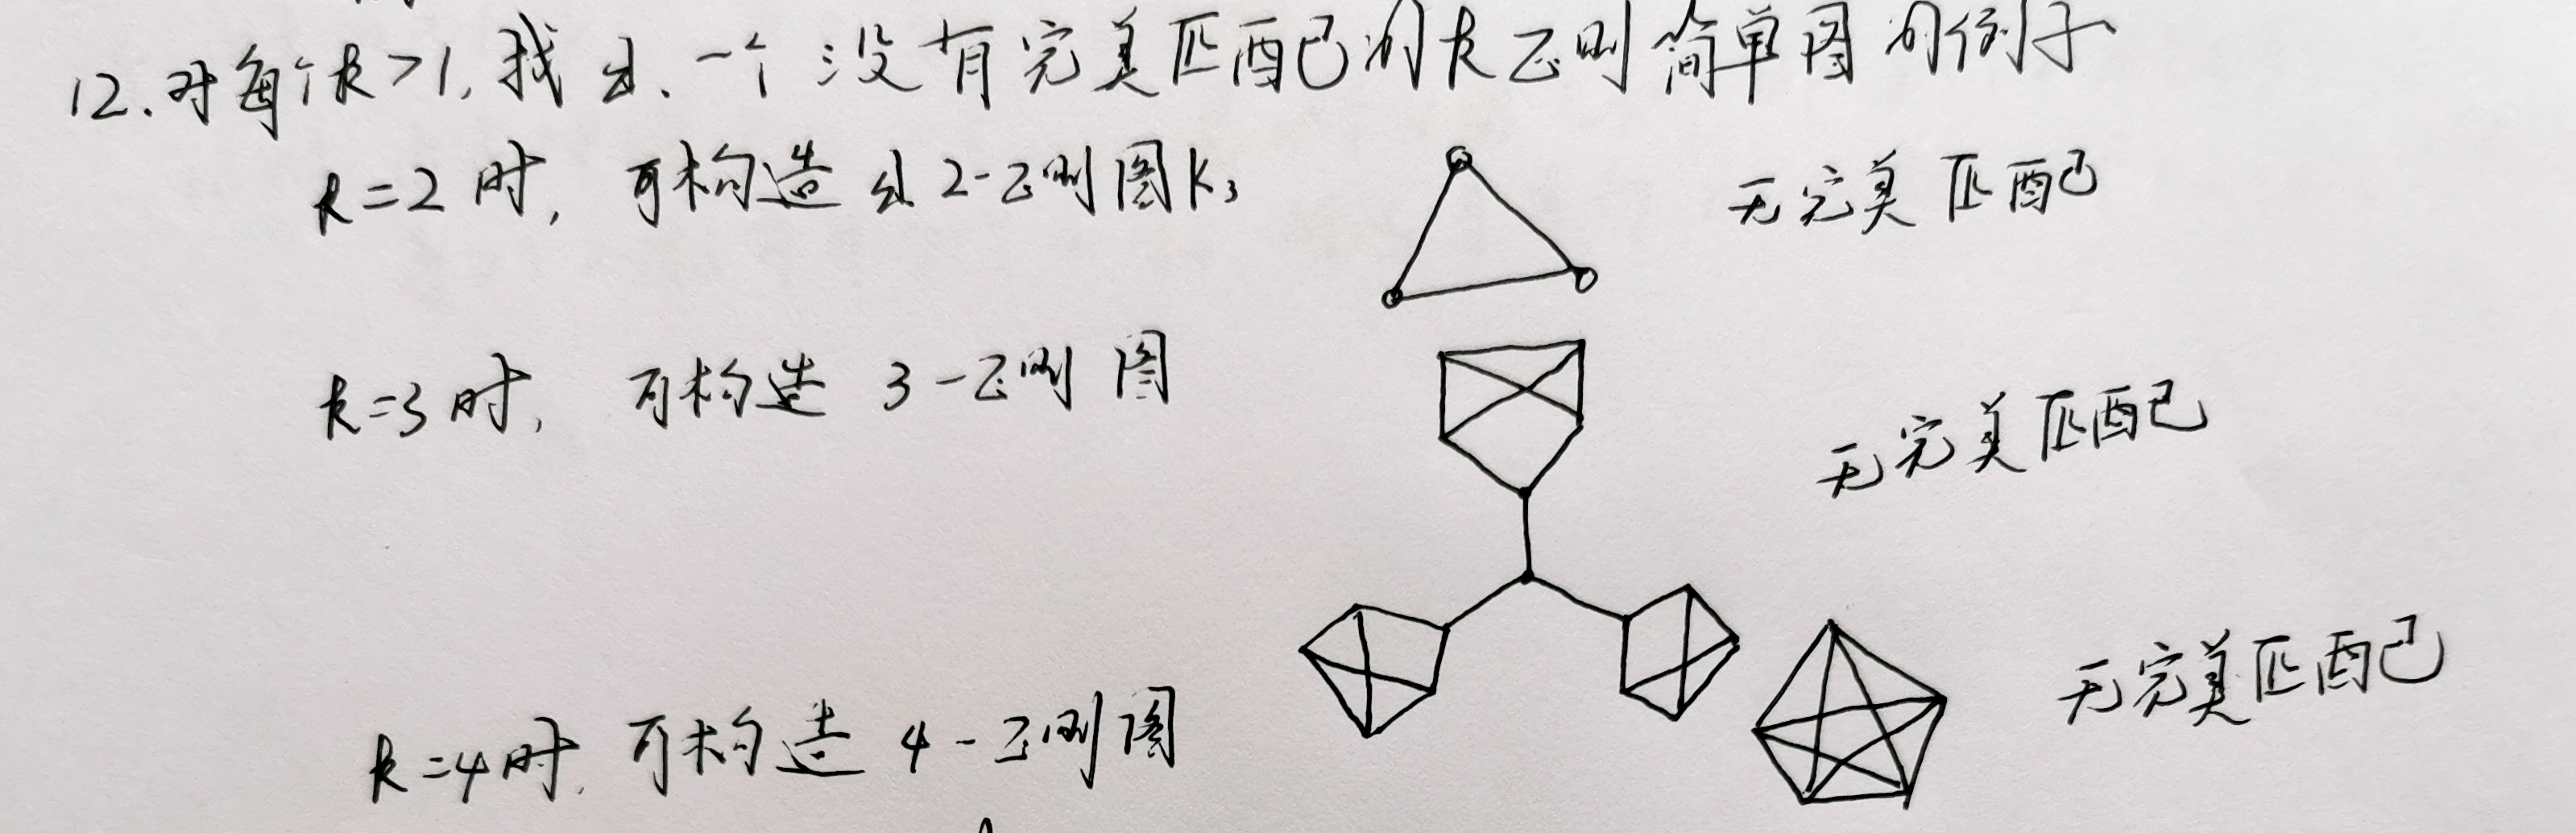 12. 对每个k>1, 找出一个没有完美匹配的k正则简单图的例子
k=2时, 可构造出2-正则图K₃ 无完美匹配
k=3时, 可构造 3-正则图 无完美匹配
k=4时, 可构造 4-正则图 无完美匹配